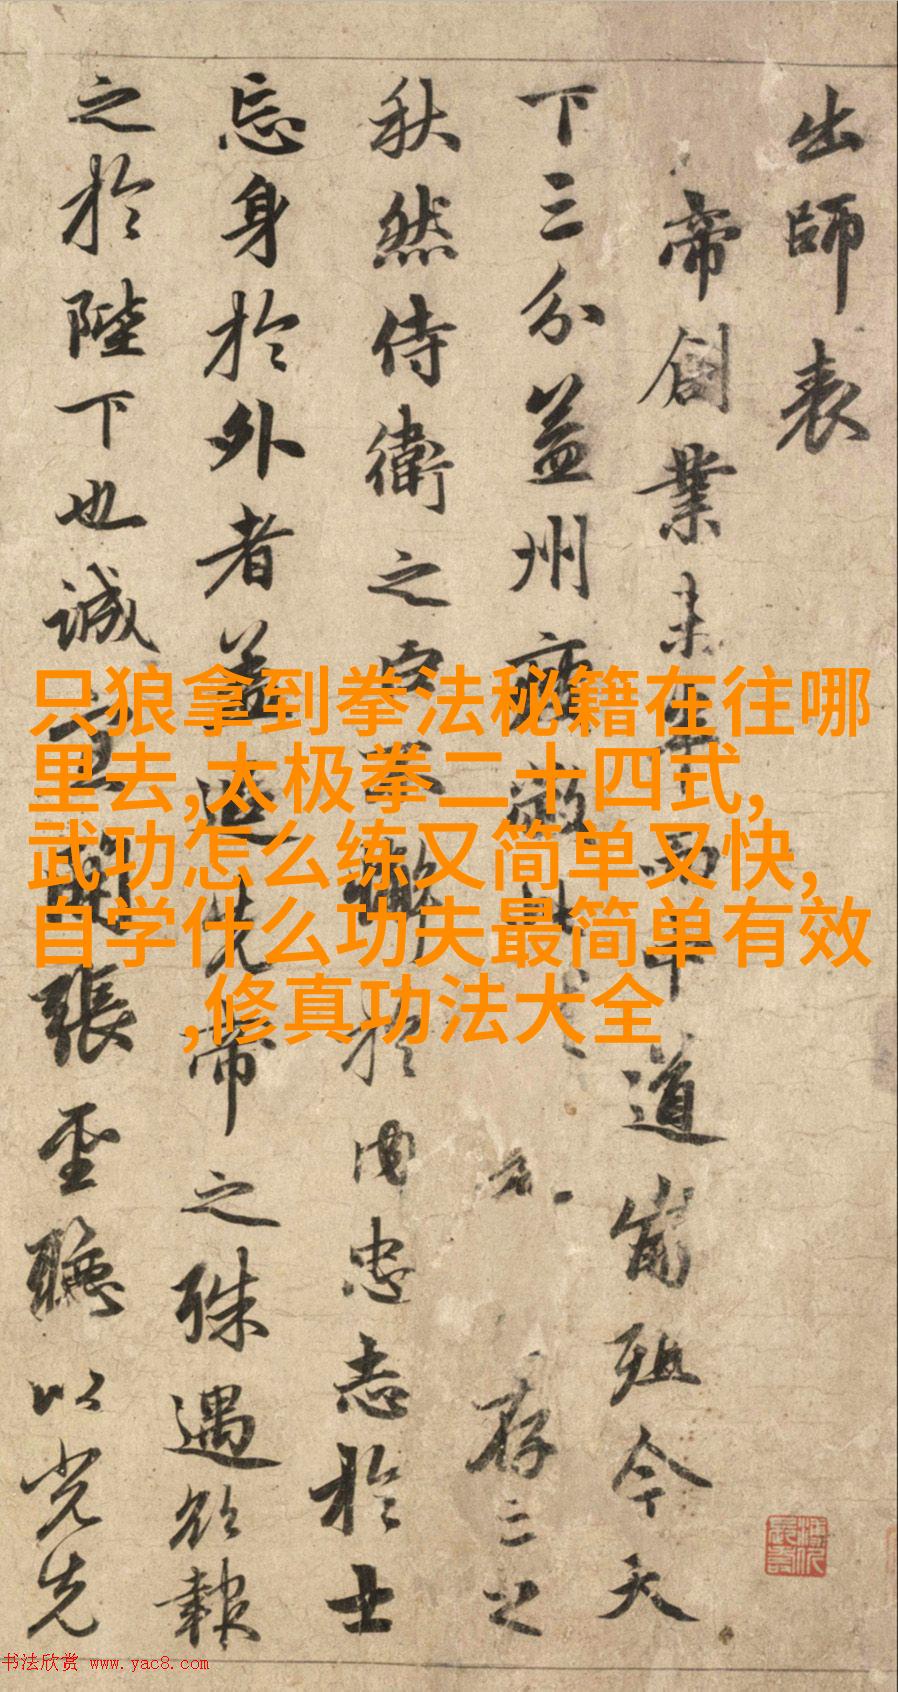 出師表
帝創業未半而中道崩殂今天
下三分益州疲敝存亡之
秋然侍衛之臣不懈於内忠志於士
忘身於外者蓋追先帝之殊遇欲報
之於陛下也誠宜開張聖聽以光先
只狼拿到拳法秘籍在往哪
里去,太极拳二十四式,
武功怎么练又简单又快,
自学什么功夫最简单有效
,修真功法大全
书法欣赏 www.yac8.com